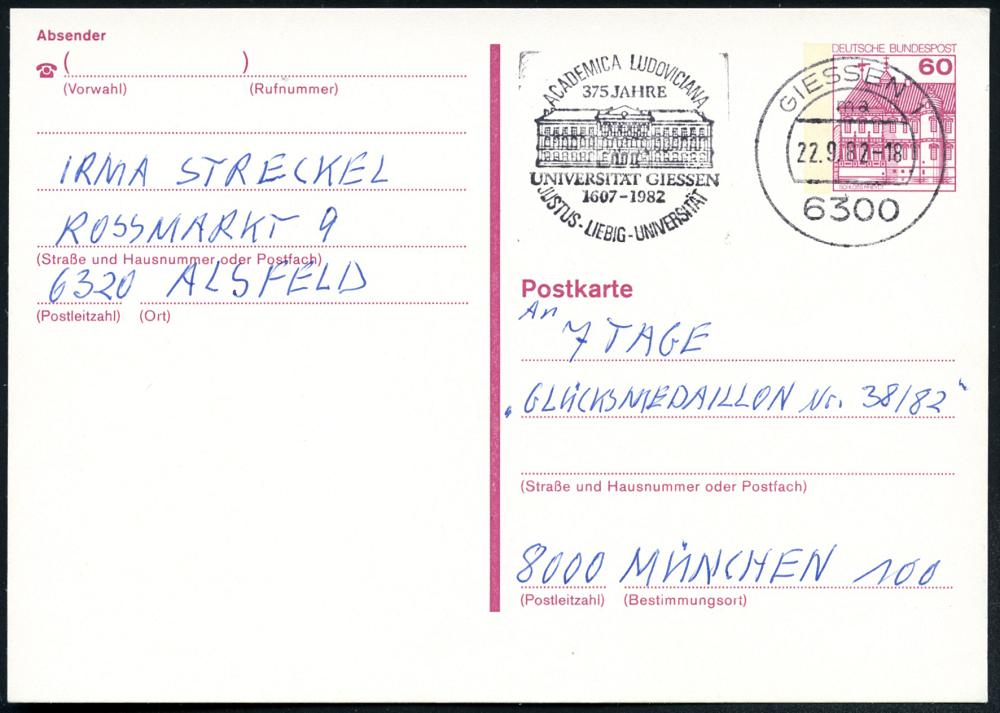 Absender
( )
(Vorwahl) (Rufnummer)
IRMA STRECKEL
ROSSMARKT 9
(Straße und Hausnummer oder Postfach)
6320 ALSFELD
(Postleitzahl) (Ort)
ACADEMICA LUDOVICIANA
375 JAHRE
UNIVERSITÄT GIESSEN
1607-1982
JUSTUS-LIEBIG-UNIVERSITÄT
DEUTSCHE BUNDESPOST
60
GIESSEN 1
ma
22.9.82-18
6300
Postkarte
An
7 TAGE
„GLÜCKSMEDAILLON Nr. 38/82“
(Straße und Hausnummer oder Postfach)
8000 MÜNCHEN 100
(Postleitzahl) (Bestimmungsort)